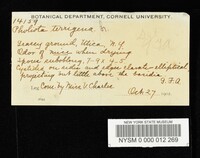 BOTANICAL DEPARTMENT, CORNELL UNIVERSITY.
14159
Pholiota terrigena
Grassy ground, Utica, N.Y.
Odor of mice when drying
Spores suboblong, 7-9 x 4-5
Cystidia on sides and edges clavate-elliptical
projecting but little above the basidia
Leg Com. by Miss V. Charles
Oct 27
NEW YORK STATE MUSEUM
NYSM 0 000 012 269